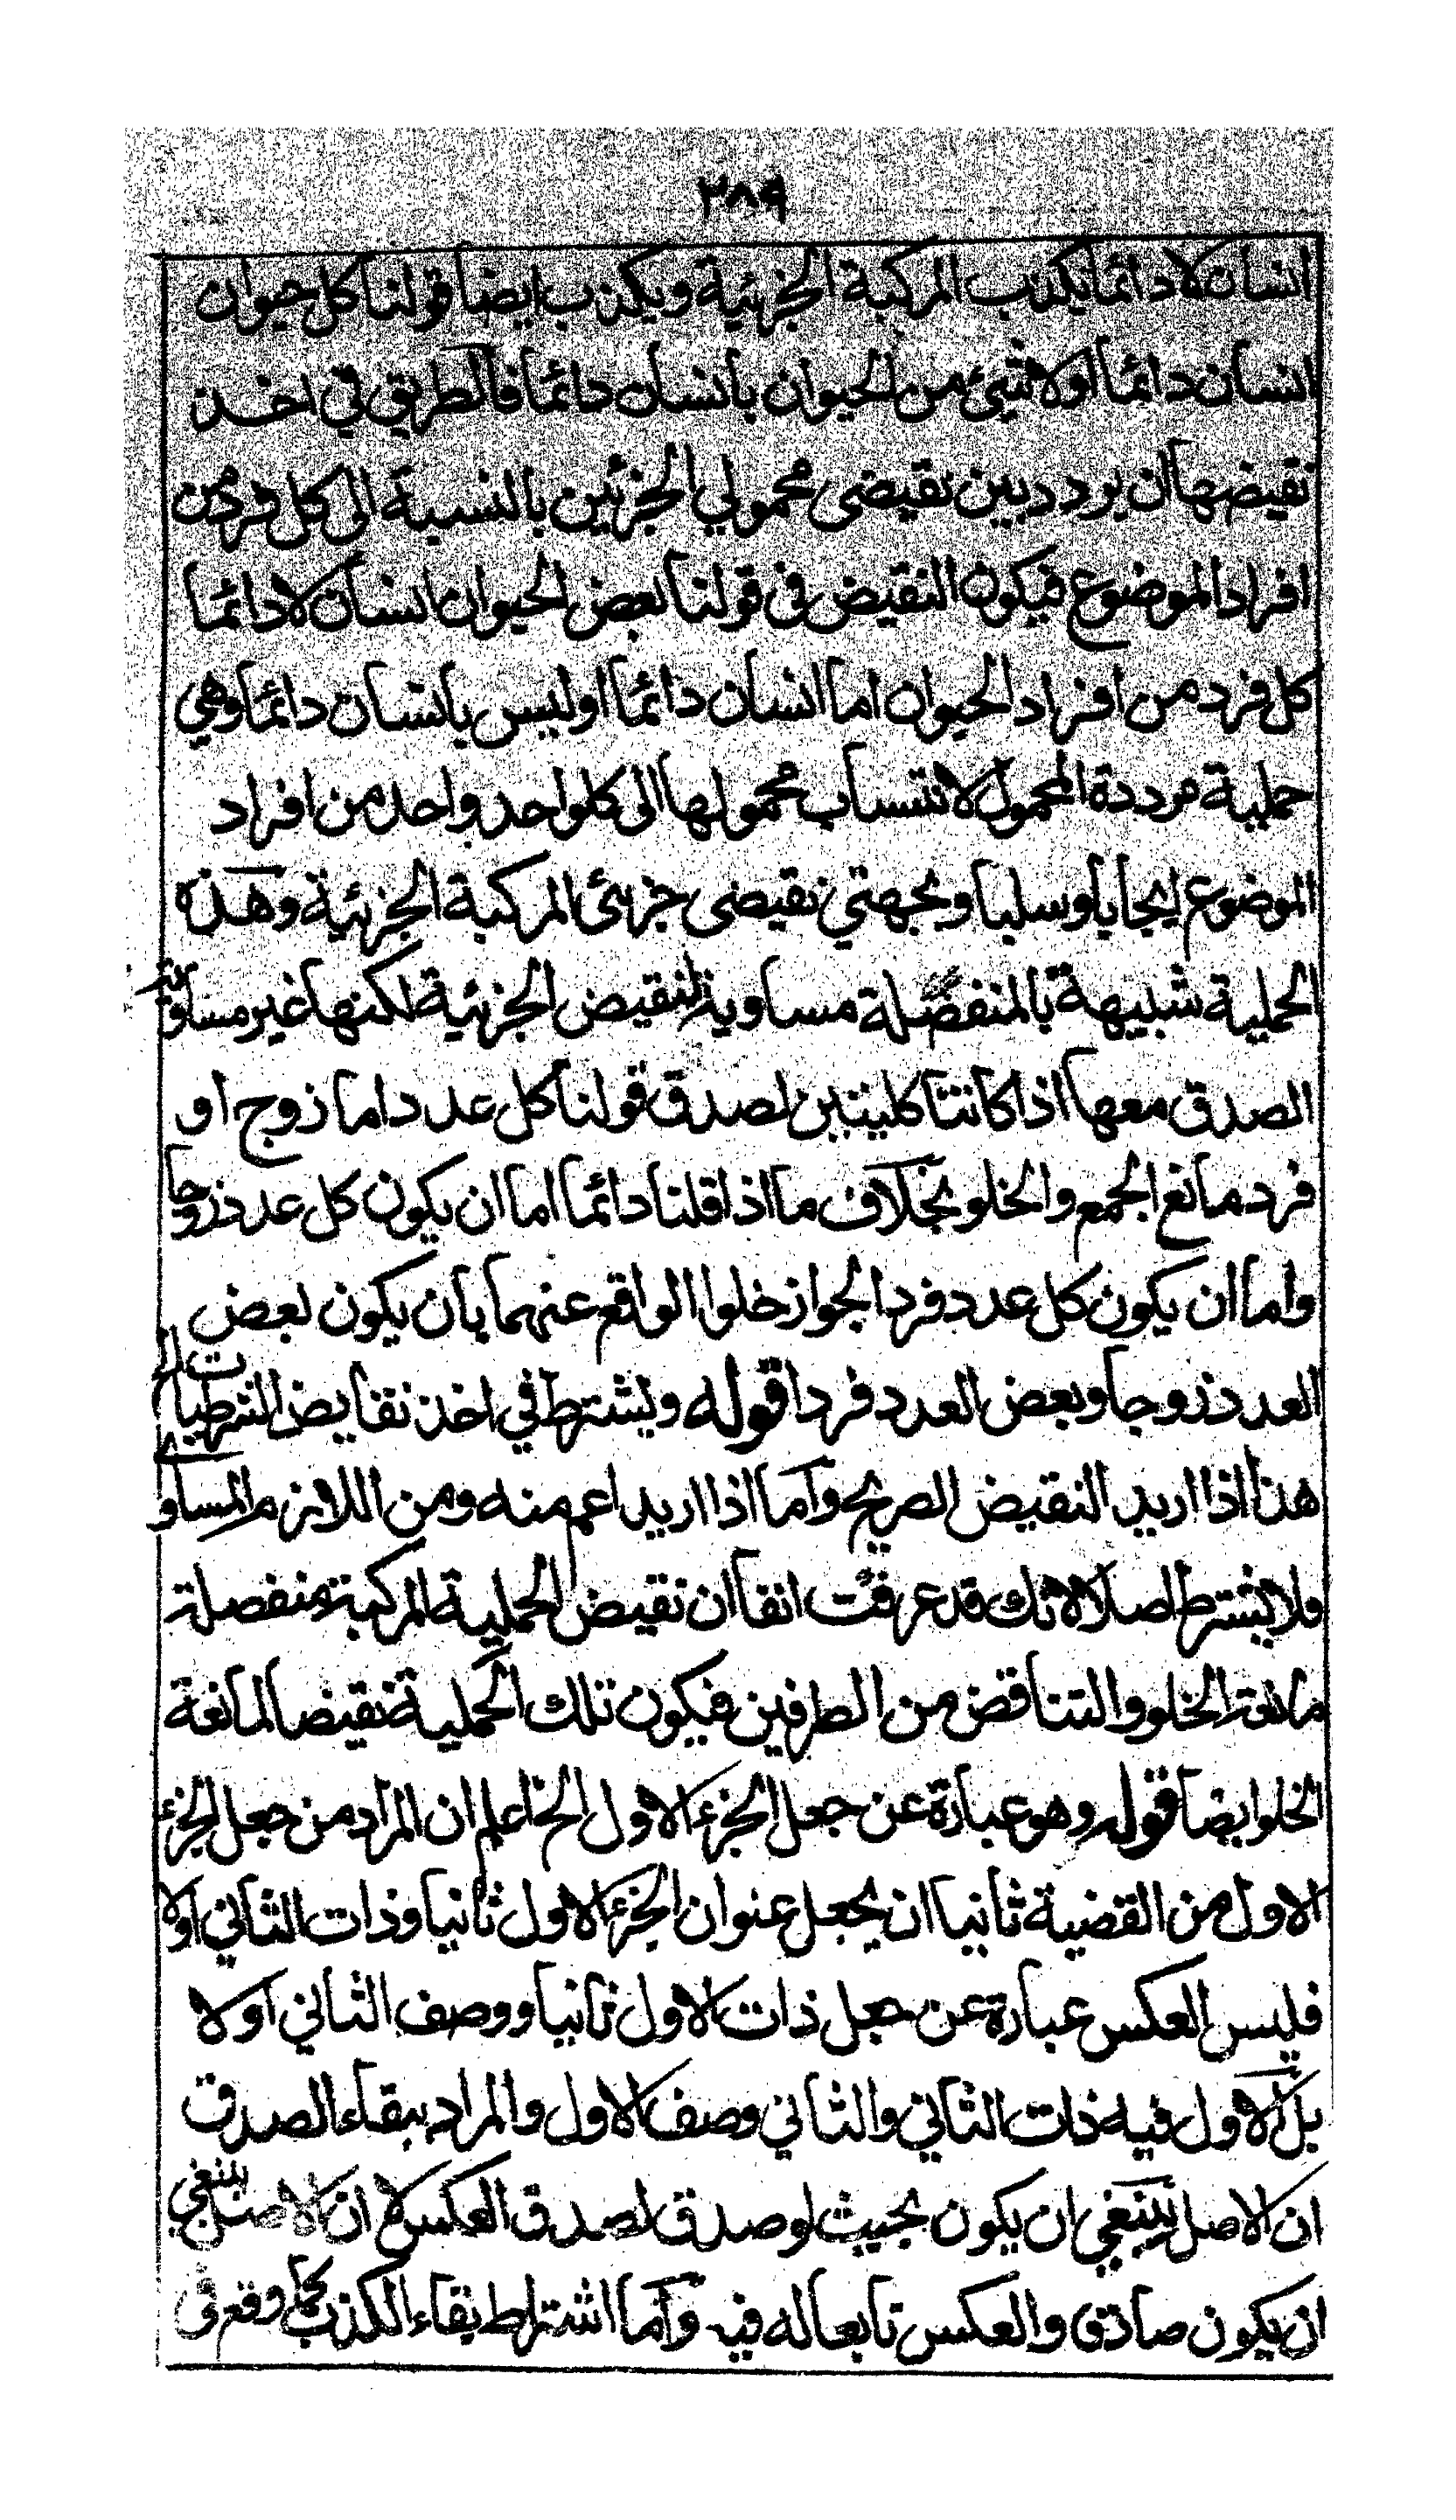 ٢٨٩
انسان لا دائما يكذب المركبة الجزئية ويكذب ايضا قولنا كل حيوان
انسان دائما او لا شيئ من الحيوان بانسان دائما فالطريق في اخذ
نقيضها ان يردد بين نقيضى محمولي الجزئين بالنسبة الى كل فرد من
افراد الموضوع فيكون النقيض فى قولنا بعض الحيوان انسان لا دائما
كل فرد من افراد الحيوان اما انسان دائما او ليس بانسان دائما وهي
حملية مرددة المحمول لانتساب محمولها الى كلواحد واحد من افراد
الموضوع ايجابا وسلبا وبجهتي نقيضى جزئى المركبة الجزئية وهذه
الحملية شبيهة بالمنفصلة مساوية لنقيض الجزئية لكنها غير مساوية
الصدق معها اذا كانتا كليتين لصدق قولنا كل عدد اما زوج او
فرد مانع الجمع والخلو بخلاف ما اذا قلنا دائما اما ان يكون كل عدد زوجا
واما ان يكون كل عدد فردا لجواز خلوا الواقع عنهما بان يكون بعض
العدد زوجا وبعض العدد فردا قوله ويشترط في اخذ نقايض الشرطيات الخ
هذا اذا اريد النقيض الصريح وآما اذا اريد اعم منه ومن اللازم المساوي
فلا يشترط اصلا لانك قد عرفت انفا ان نقيض الحملية المركبة منفصلة
مانعة الخلو والتناقض من الطرفين فيكون تلك الحملية نقيضا لمانعة
الخلو ايضا قوله وهو عبارة عن جعل الجزء الاول الخ اعلم ان المراد من جعل الجزء
الاول من القضية ثانيا ان يجعل عنوان الجزء الاول ثانيا وذات الثاني اولا
فليس العكس عبارة عن جعل ذات الاول ثانيا ووصف الثاني اولا
بل الاول فيه ذات الثاني والثاني وصف الاول والمراد ببقاء الصدق
ان الاصل ينبغي ان يكون بحيث لو صدق لصدق العكس لا ان الاصل ينبغي
ان يكون صادق والعكس تابعا له فيه وآما اشتراط بقاء الكذب كما وقع فى